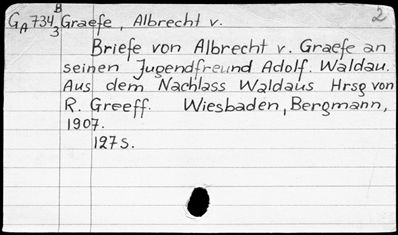 2
B
GA734 Graefe, Albrecht v.
3
Briefe von Albrecht v. Graefe an
seinen Jugendfreund Adolf. Waldau.
Aus dem Nachlass Waldaus Hrsg von
R. Greeff. Wiesbaden, Bergmann,
1907.
127S.